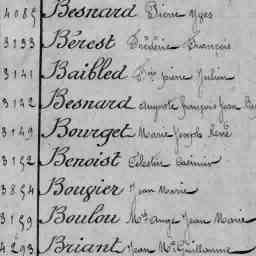 4085 Besnard Pierre Yves
3133 Bérest Frédéric François
3141 Baibled Fois pierre Julien
3142 Besnard Auguste françois Jean
3149 Bourget Marie Joseph René
3152 Benoist Célestin Casimir
3854 Bougier Jean Marie
3159 Boulou Mie Ange Jean Marie
4293 Briant Jean Mie Guillaume